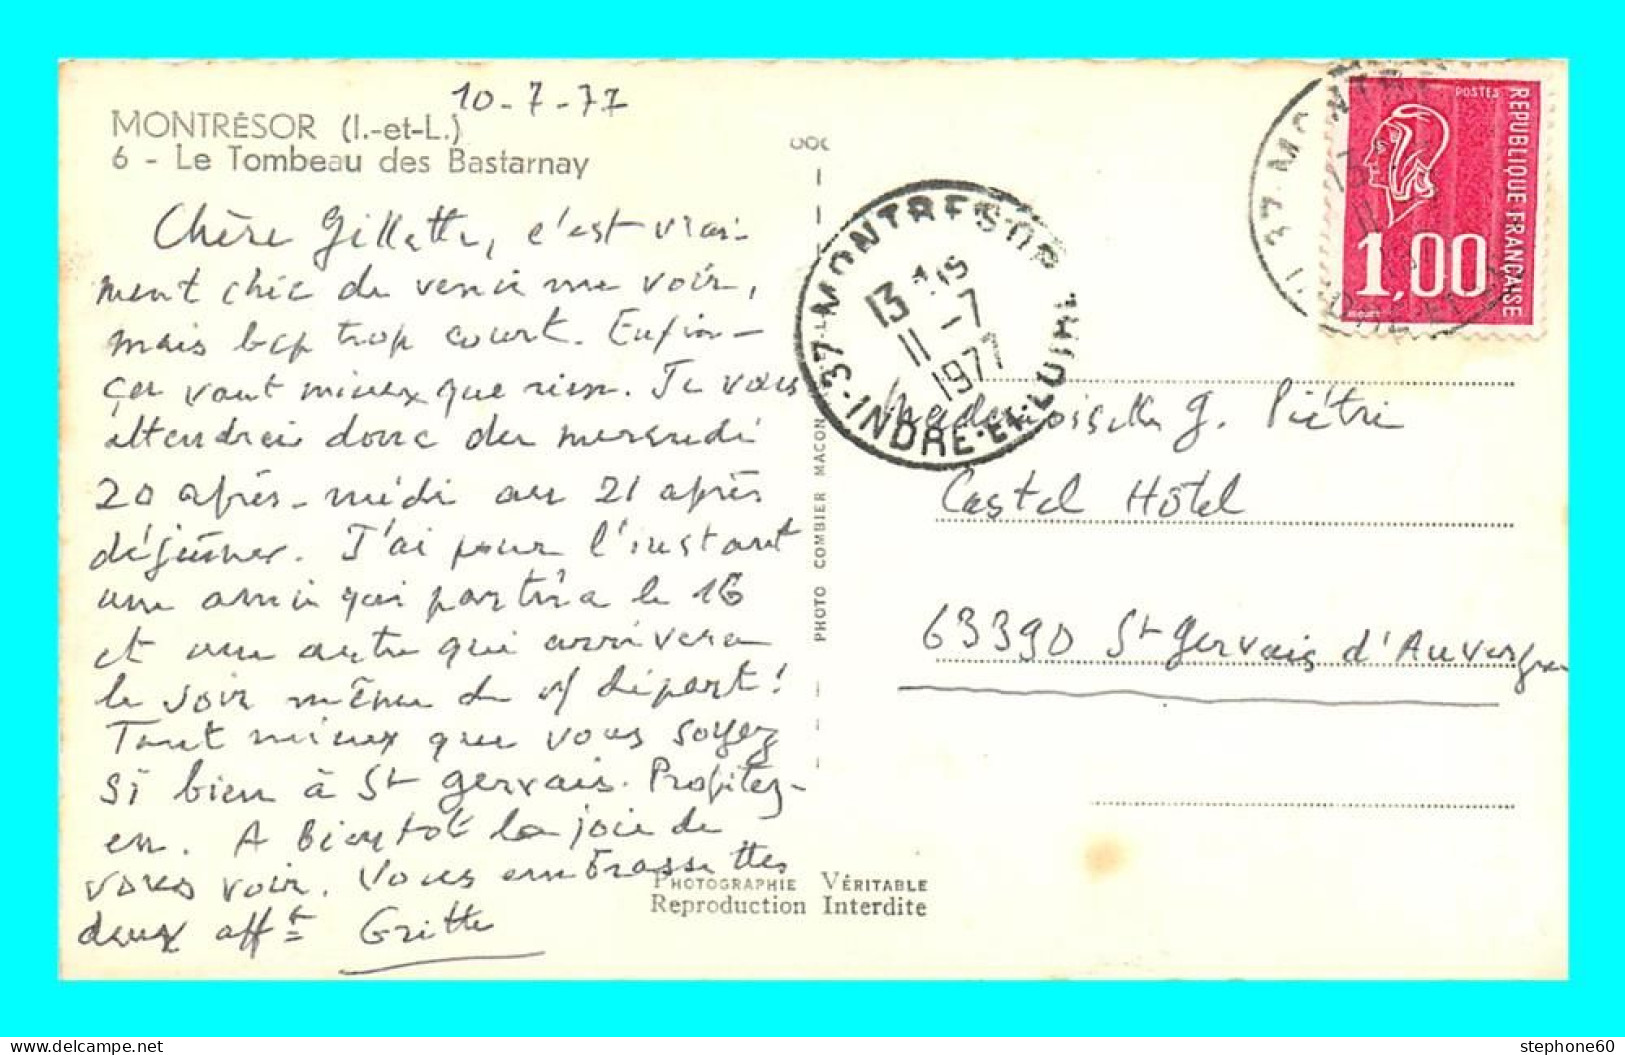 10-7-77
MONTRÉSOR (I.-et-L.)
6 - Le Tombeau des Bastarnay
Chère Gillette, c'est vrai-
ment chic de venir me voir,
mais bcp trop court. Enfin
ça vaut mieux que rien. Je vous
attendrai donc du mercredi
20 après-midi au 21 après
déjeuner. J'ai pour l'instant
une amie qui partira le 16
et une autre qui arrivera
le soir même du départ!
Tant mieux que vous soyez
si bien à St Gervais. Profitez-
en. A bientôt la joie de
vous voir. Vous embrasse ttes
deux afft
Gritte
PHOTO COMBIER MACON
PHOTOGRAPHIE VÉRITABLE
Reproduction Interdite
37 MONTRESOR
13H15
11-7
1977
INDRE-ET-LOIRE
POSTES
REPUBLIQUE FRANÇAISE
1,00
37 MONTRE
Mademoiselle G. Piétri
Castel Hôtel
63390 St Gervais d'Auvergne
stephone60